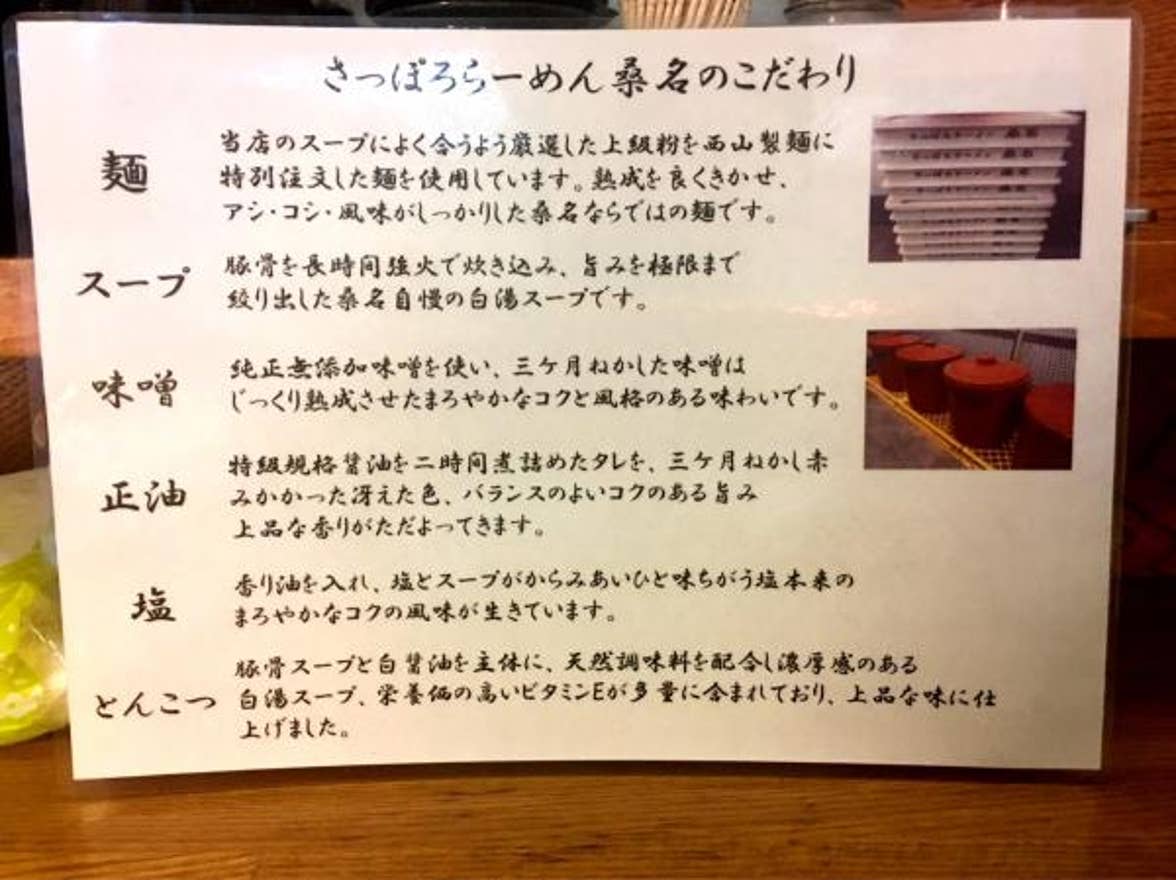 さっぽろらーめん桑名のこだわり
麺
当店のスープによく合うよう厳選した上級粉を西山製麺に
特別注文した麺を使用しています。熟成を良くきかせ、
アシ・コシ・風味がしっかりした桑名ならではの麺です。
スープ
豚骨を長時間強火で炊き込み、旨みを極限まで
絞り出した桑名自慢の白湯スープです。
味噌
純正無添加味噌を使い、三ケ月ねかした味噌は
じっくり熟成させたまろやかなコクと風格のある味わいです。
正油
特級規格醤油を二時間煮詰めたタレを、三ケ月ねかし赤
みかかった冴えた色、バランスのよいコクのある旨み
上品な香りがただよってきます。
塩
香り油を入れ、塩とスープがからみあいひと味ちがう塩本来の
まろやかなコクの風味が生きています。
とんこつ
豚骨スープと白醤油を主体に、天然調味料を配合し濃厚感のある
白湯スープ、栄養価の高いビタミンEが多量に含まれており、上品な味に仕
上げました。